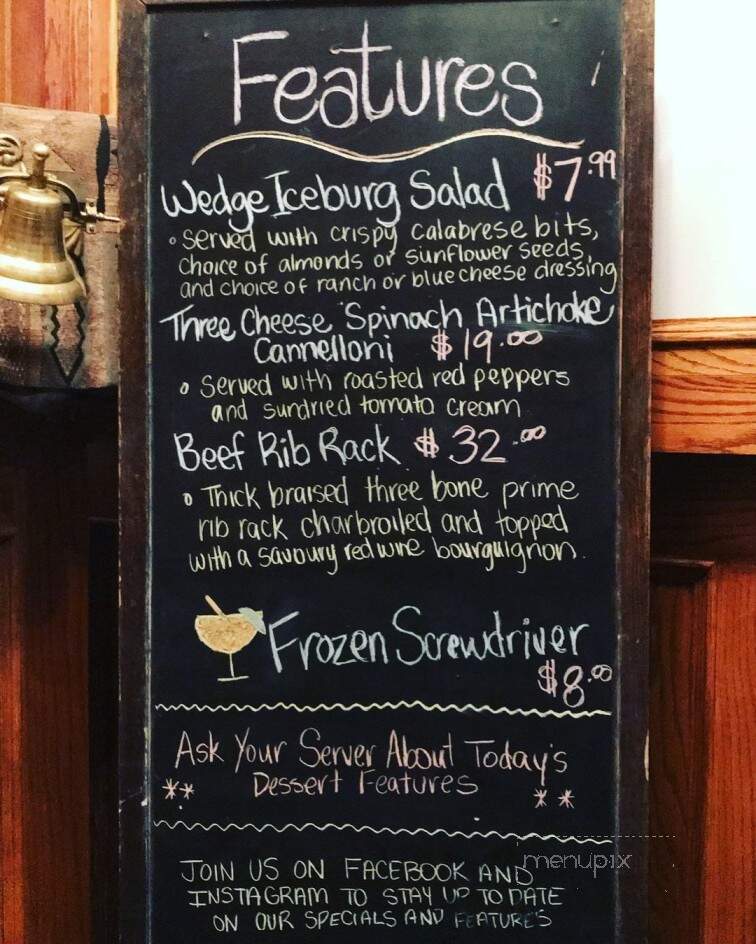 Features
Wedge Iceburg Salad $7.99
• Served with crispy calabrese bits,
choice of almonds or sunflower seeds,
and choice of ranch or blue cheese dressing
Three Cheese Spinach Artichoke
Cannelloni $19.00
• Served with roasted red peppers
and sundried tomato cream
Beef Rib Rack $32.00
• Thick braised three bone prime
rib rack charbroiled and topped
with a savoury red wine bourguignon.
Frozen Screwdriver
$8.00
Ask Your Server About Today's
** Dessert Features **
JOIN US ON FACEBOOK AND
INSTAGRAM TO STAY UP TO DATE
ON OUR SPECIALS AND FEATURES
menupix